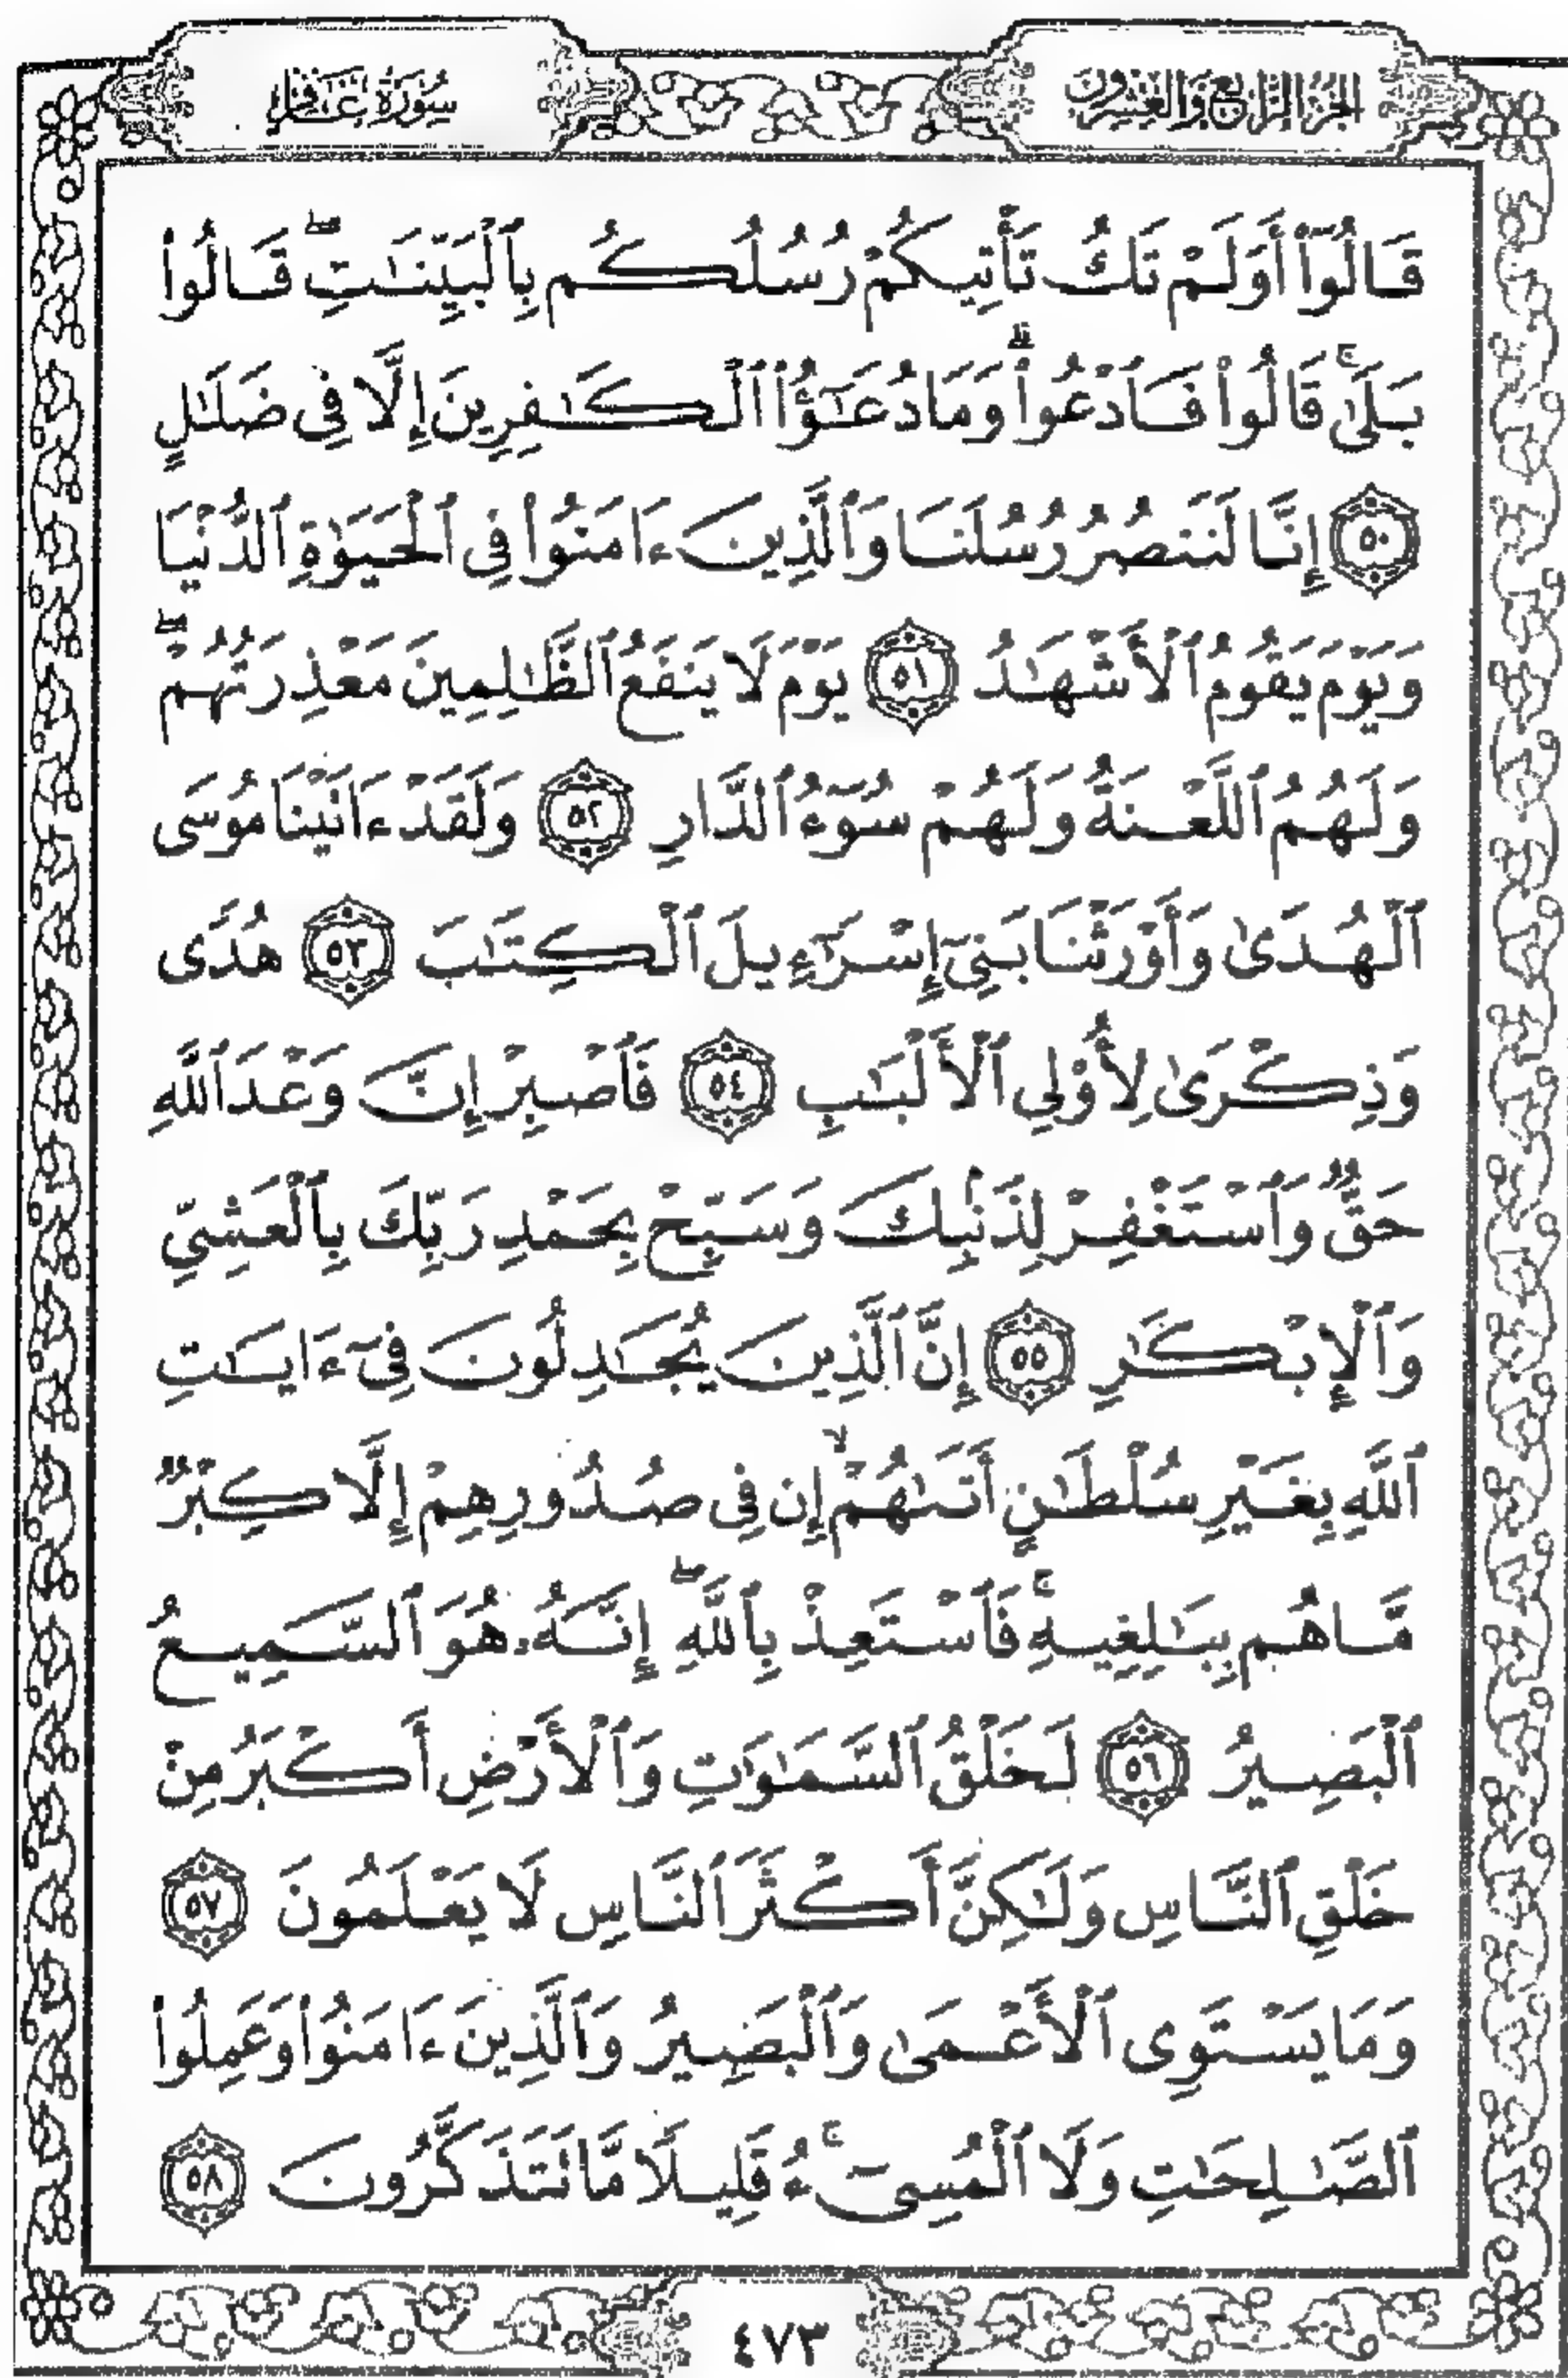 الجزء الرابع والعشرون
سُورَةُ غَافِرٍ
قَالُوٓا۟ أَوَلَمْ تَكُ تَأْتِيكُمْ رُسُلُكُم بِٱلْبَيِّنَـٰتِ ۖ قَالُوا۟
بَلَىٰ ۚ قَالُوا۟ فَٱدْعُوا۟ ۗ وَمَا دُعَـٰٓؤُا۟ ٱلْكَـٰفِرِينَ إِلَّا فِى ضَلَـٰلٍ
٥٠ إِنَّا لَنَنصُرُ رُسُلَنَا وَٱلَّذِينَ ءَامَنُوا۟ فِى ٱلْحَيَوٰةِ ٱلدُّنْيَا
وَيَوْمَ يَقُومُ ٱلْأَشْهَـٰدُ ٥١ يَوْمَ لَا يَنفَعُ ٱلظَّـٰلِمِينَ مَعْذِرَتُهُمْ ۖ
وَلَهُمُ ٱللَّعْنَةُ وَلَهُمْ سُوٓءُ ٱلدَّارِ ٥٢ وَلَقَدْ ءَاتَيْنَا مُوسَى
ٱلْهُدَىٰ وَأَوْرَثْنَا بَنِىٓ إِسْرَٰٓءِيلَ ٱلْكِتَـٰبَ ٥٣ هُدًى
وَذِكْرَىٰ لِأُو۟لِى ٱلْأَلْبَـٰبِ ٥٤ فَٱصْبِرْ إِنَّ وَعْدَ ٱللَّهِ
حَقٌّ وَٱسْتَغْفِرْ لِذَنۢبِكَ وَسَبِّحْ بِحَمْدِ رَبِّكَ بِٱلْعَشِىِّ
وَٱلْإِبْكَـٰرِ ٥٥ إِنَّ ٱلَّذِينَ يُجَـٰدِلُونَ فِىٓ ءَايَـٰتِ
ٱللَّهِ بِغَيْرِ سُلْطَـٰنٍ أَتَىٰهُمْ ۙ إِن فِى صُدُورِهِمْ إِلَّا كِبْرٌ
مَّا هُم بِبَـٰلِغِيهِ ۚ فَٱسْتَعِذْ بِٱللَّهِ ۖ إِنَّهُۥ هُوَ ٱلسَّمِيعُ
ٱلْبَصِيرُ ٥٦ لَخَلْقُ ٱلسَّمَـٰوَٰتِ وَٱلْأَرْضِ أَكْبَرُ مِنْ
خَلْقِ ٱلنَّاسِ وَلَـٰكِنَّ أَكْثَرَ ٱلنَّاسِ لَا يَعْلَمُونَ ٥٧
وَمَا يَسْتَوِى ٱلْأَعْمَىٰ وَٱلْبَصِيرُ وَٱلَّذِينَ ءَامَنُوا۟ وَعَمِلُوا۟
ٱلصَّـٰلِحَـٰتِ وَلَا ٱلْمُسِىٓءُ ۚ قَلِيلًا مَّا تَتَذَكَّرُونَ ٥٨
٤٧٣